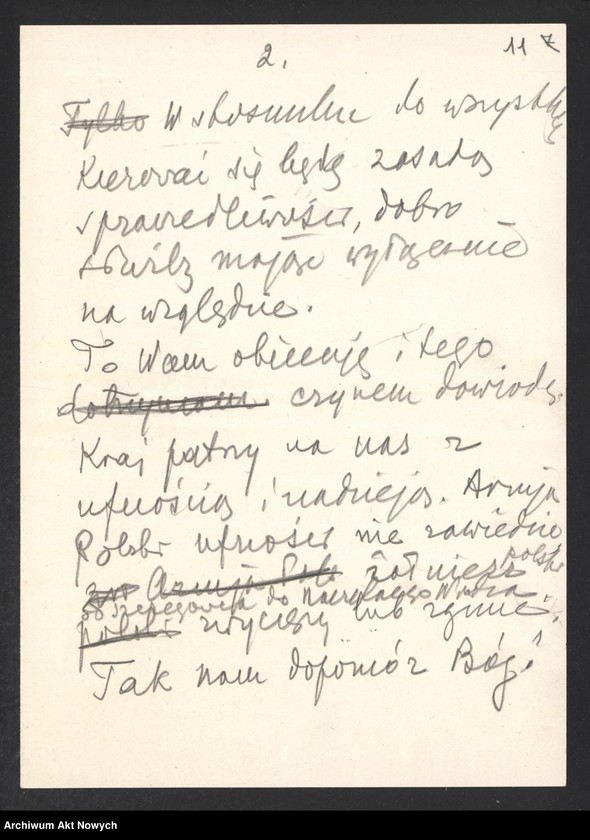 2.
11 7
Tylko W stosunku do wszystkich
kierować się będę zasadą
sprawiedliwości, dobro
służby mając wyłącznie
na względzie.
To Wam obiecuję i tego
dotrzymam czynem dowiodę.
Kraj patrzy na nas z
ufnością i nadzieją. Armja
Polska ufności nie zawiedzie
Armja Pol żołnierz polski
od szeregowca do naczelnego Wodza
polski zwycięży lub zginie.
Tak nam dopomóż Bóg!
Archiwum Akt Nowych